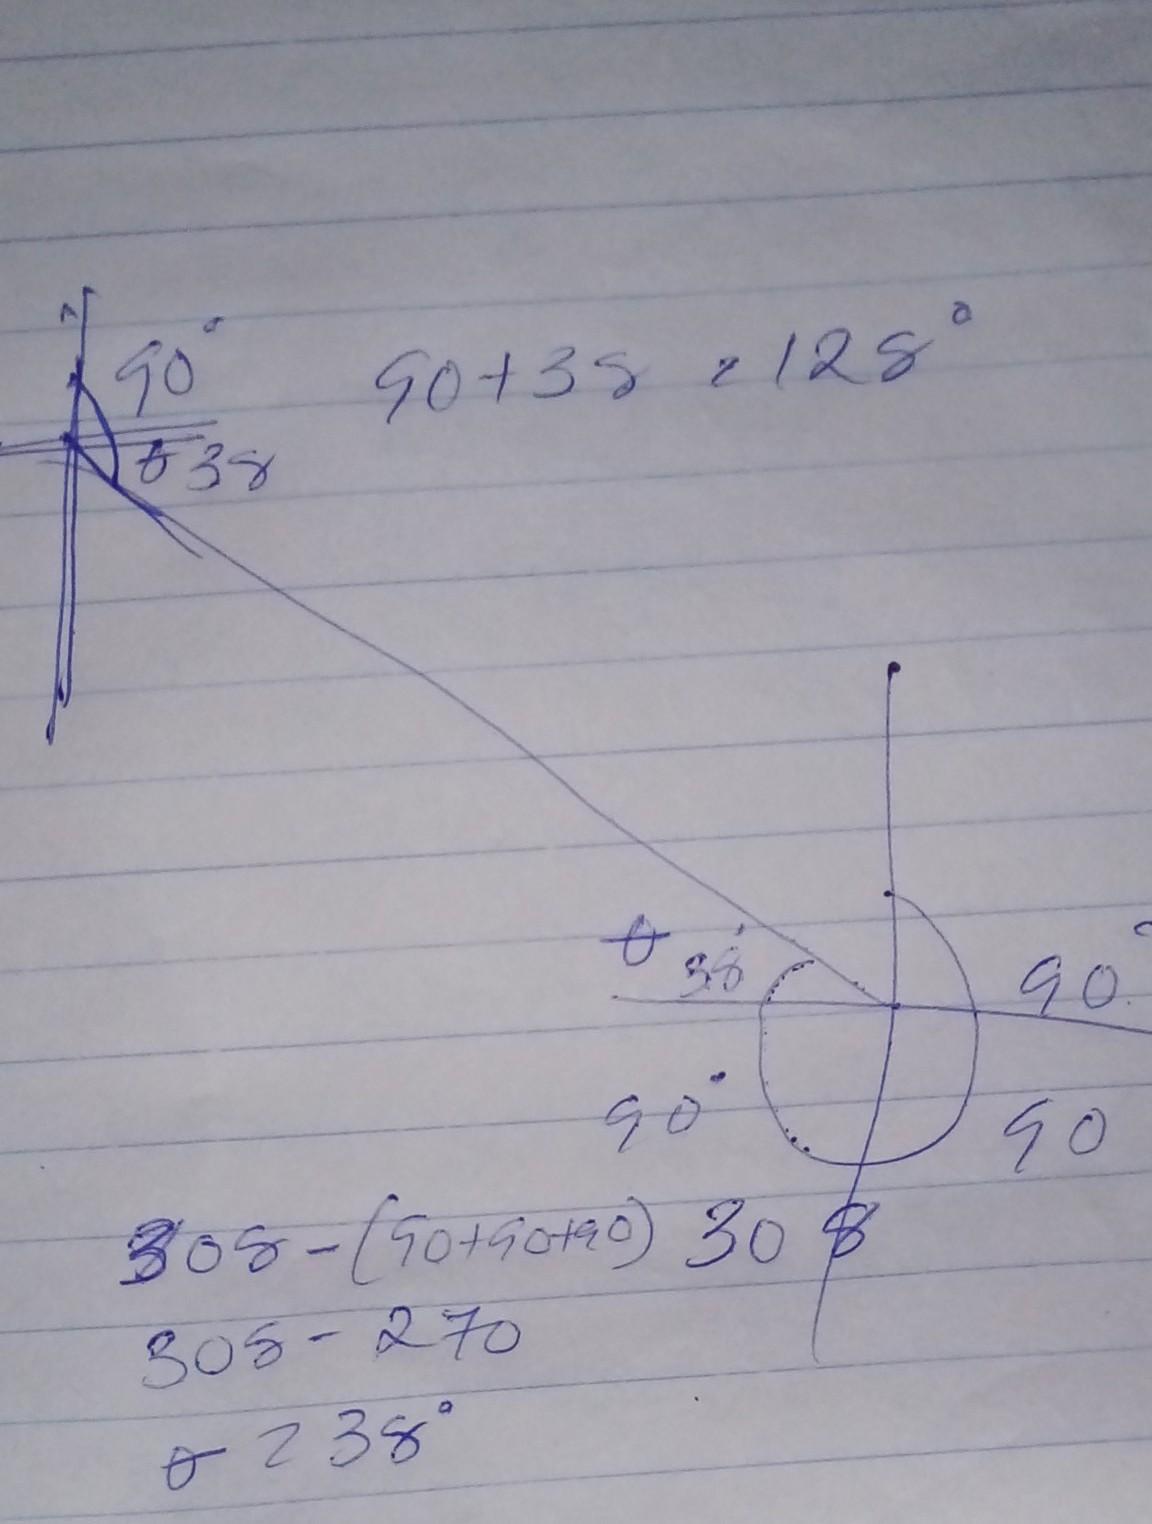 90° 90+38 = 128°
θ 38
θ 38°
90°
90° 90
308-(90+90+90) 308
308- 270
θ = 38°